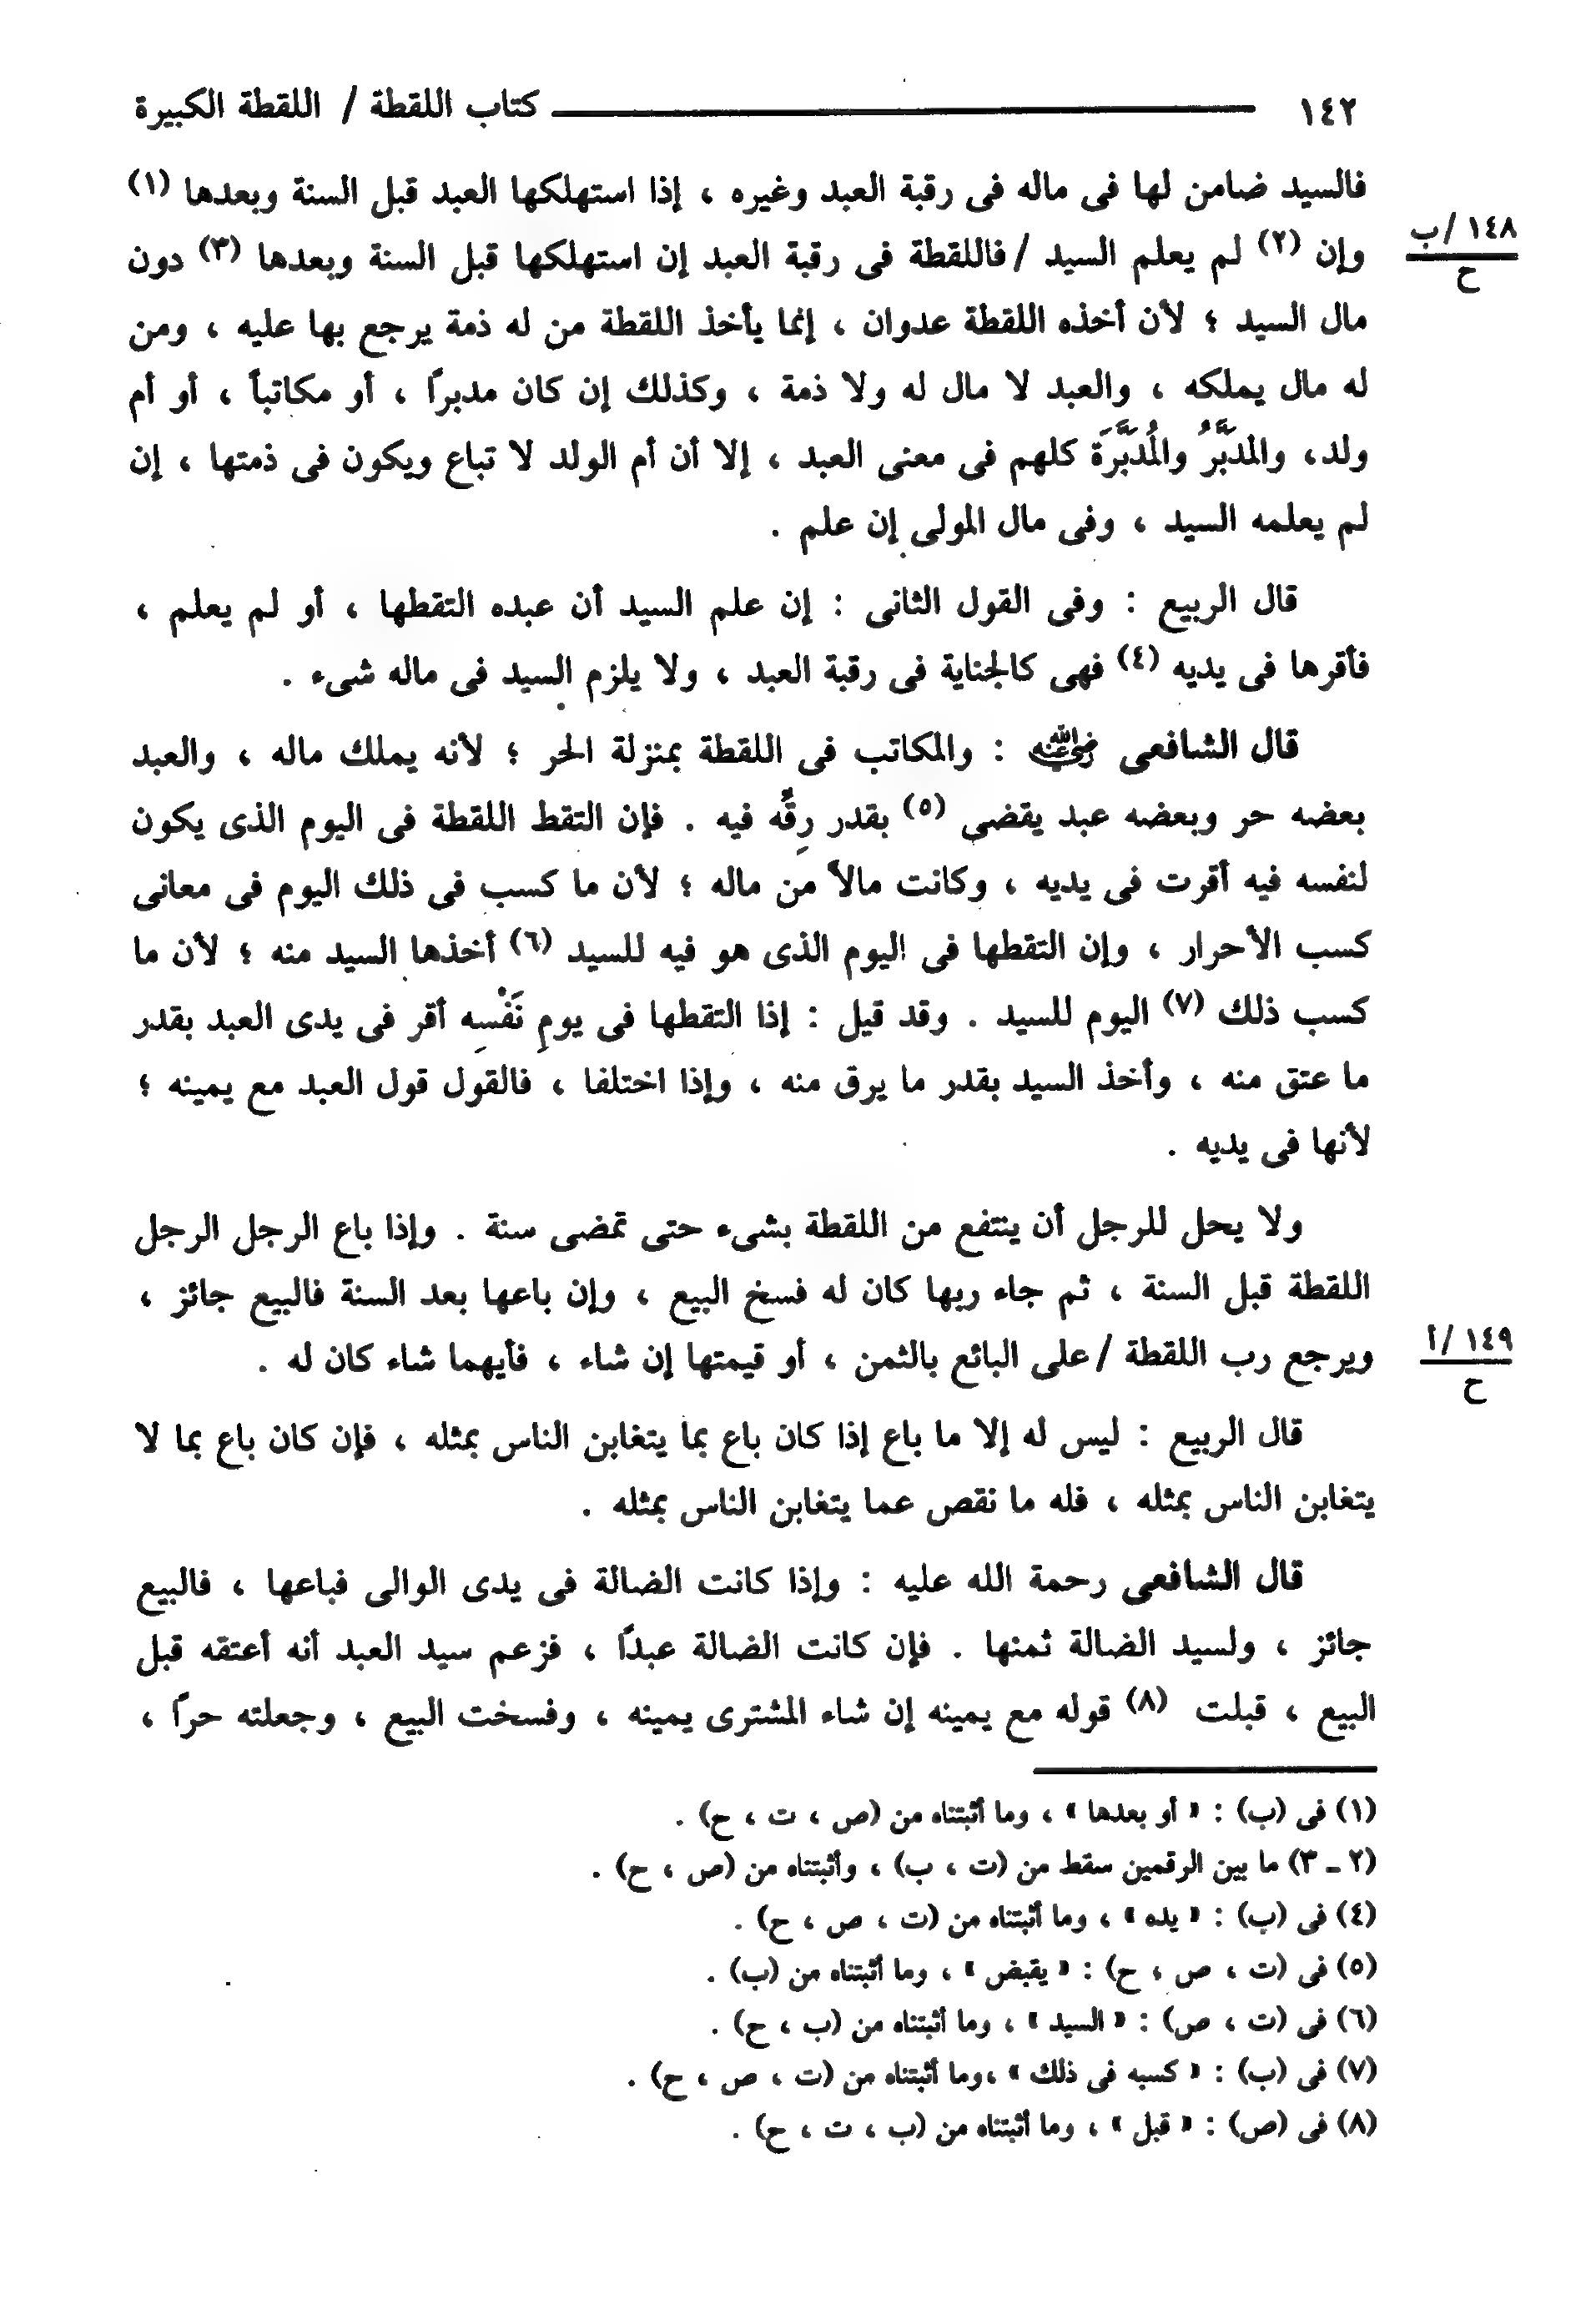 ١٤٢ كتاب اللقطة / اللقطة الكبيرة
فالسيد ضامن لها فى ماله فى رقبة العبد وغيره ، إذا استهلكها العبد قبل السنة وبعدها (١)
١٤٨ /ب
ح
وإن (٢) لم يعلم السيد / فاللقطة فى رقبة العبد إن استهلكها قبل السنة وبعدها (٣) دون
مال السيد ؛ لأن أخذه اللقطة عدوان ، إنما يأخذ اللقطة من له ذمة يرجع بها عليه ، ومن
له مال يملكه ، والعبد لا مال له ولا ذمة ، وكذلك إن كان مدبرًا ، أو مكاتباً ، أو أم
ولد، والمدَبَّرُ والمُدَبَّرَة كلهم فى معنى العبد ، إلا أن أم الولد لا تباع ويكون فى ذمتها ، إن
لم يعلمه السيد ، وفى مال المولى إن علم .
قال الربيع : وفى القول الثانى : إن علم السيد أن عبده التقطها ، أو لم يعلم ،
فأقرها فى يديه (٤) فهى كالجناية فى رقبة العبد ، ولا يلزم السيد فى ماله شىء .
قال الشافعى رضي الله عنه : والمكاتب فى اللقطة بمنزلة الحر ؛ لأنه يملك ماله ، والعبد
بعضه حر وبعضه عبد يقضى (٥) بقدر رِقِّه فيه . فإن التقط اللقطة فى اليوم الذى يكون
لنفسه فيه أقرت فى يديه ، وكانت مالاً من ماله ؛ لأن ما كسب فى ذلك اليوم فى معانى
كسب الأحرار ، وإن التقطها فى اليوم الذى هو فيه للسيد (٦) أخذها السيد منه ؛ لأن ما
كسب ذلك (٧) اليوم للسيد . وقد قيل : إذا التقطها فى يومِ نَفْسِه أقر فى يدى العبد بقدر
ما عتق منه ، وأخذ السيد بقدر ما يرق منه ، وإذا اختلفا ، فالقول قول العبد مع يمينه ؛
لأنها فى يديه .
ولا يحل للرجل أن ينتفع من اللقطة بشىء حتى تمضى سنة . وإذا باع الرجل الرجل
اللقطة قبل السنة ، ثم جاء ربها كان له فسخ البيع ، وإن باعها بعد السنة فالبيع جائز ،
١٤٩ /أ
ح
ويرجع رب اللقطة / على البائع بالثمن ، أو قيمتها إن شاء ، فأيهما شاء كان له .
قال الربيع : ليس له إلا ما باع إذا كان باع بما يتغابن الناس بمثله ، فإن كان باع بما لا
يتغابن الناس بمثله ، فله ما نقص عما يتغابن الناس بمثله .
قال الشافعى رحمة الله عليه : وإذا كانت الضالة فى يدى الوالى فباعها ، فالبيع
جائز ، ولسيد الضالة ثمنها . فإن كانت الضالة عبدًا ، فزعم سيد العبد أنه أعتقه قبل
البيع ، قبلت (٨) قوله مع يمينه إن شاء المشترى يمينه ، وفسخت البيع ، وجعلته حرًا ،
(١) فى (ب) : « أو بعدها » ، وما أثبتناه من (ص ، ت ، ح) .
(٢ ـ ٣) ما بين الرقمين سقط من (ت ، ب) ، وأثبتناه من (ص ، ح) .
(٤) فى (ب) : « يده » ، وما أثبتناه من (ت ، ص ، ح) .
(٥) فى (ت ، ص ، ح) : « يقبض » ، وما أثبتناه من (ب) .
(٦) فى (ت ، ص) : « السيد » ، وما أثبتناه من (ب ، ح) .
(٧) فى (ب) : « كسبه فى ذلك » ،وما أثبتناه من (ت ، ص ، ح) .
(٨) فى (ص) : « قبل » ، وما أثبتناه من (ب ، ت ، ح) .